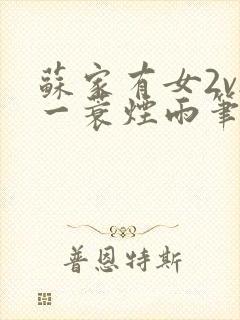 蘇家有女2v
一蓑煙雨筆
普恩特斯